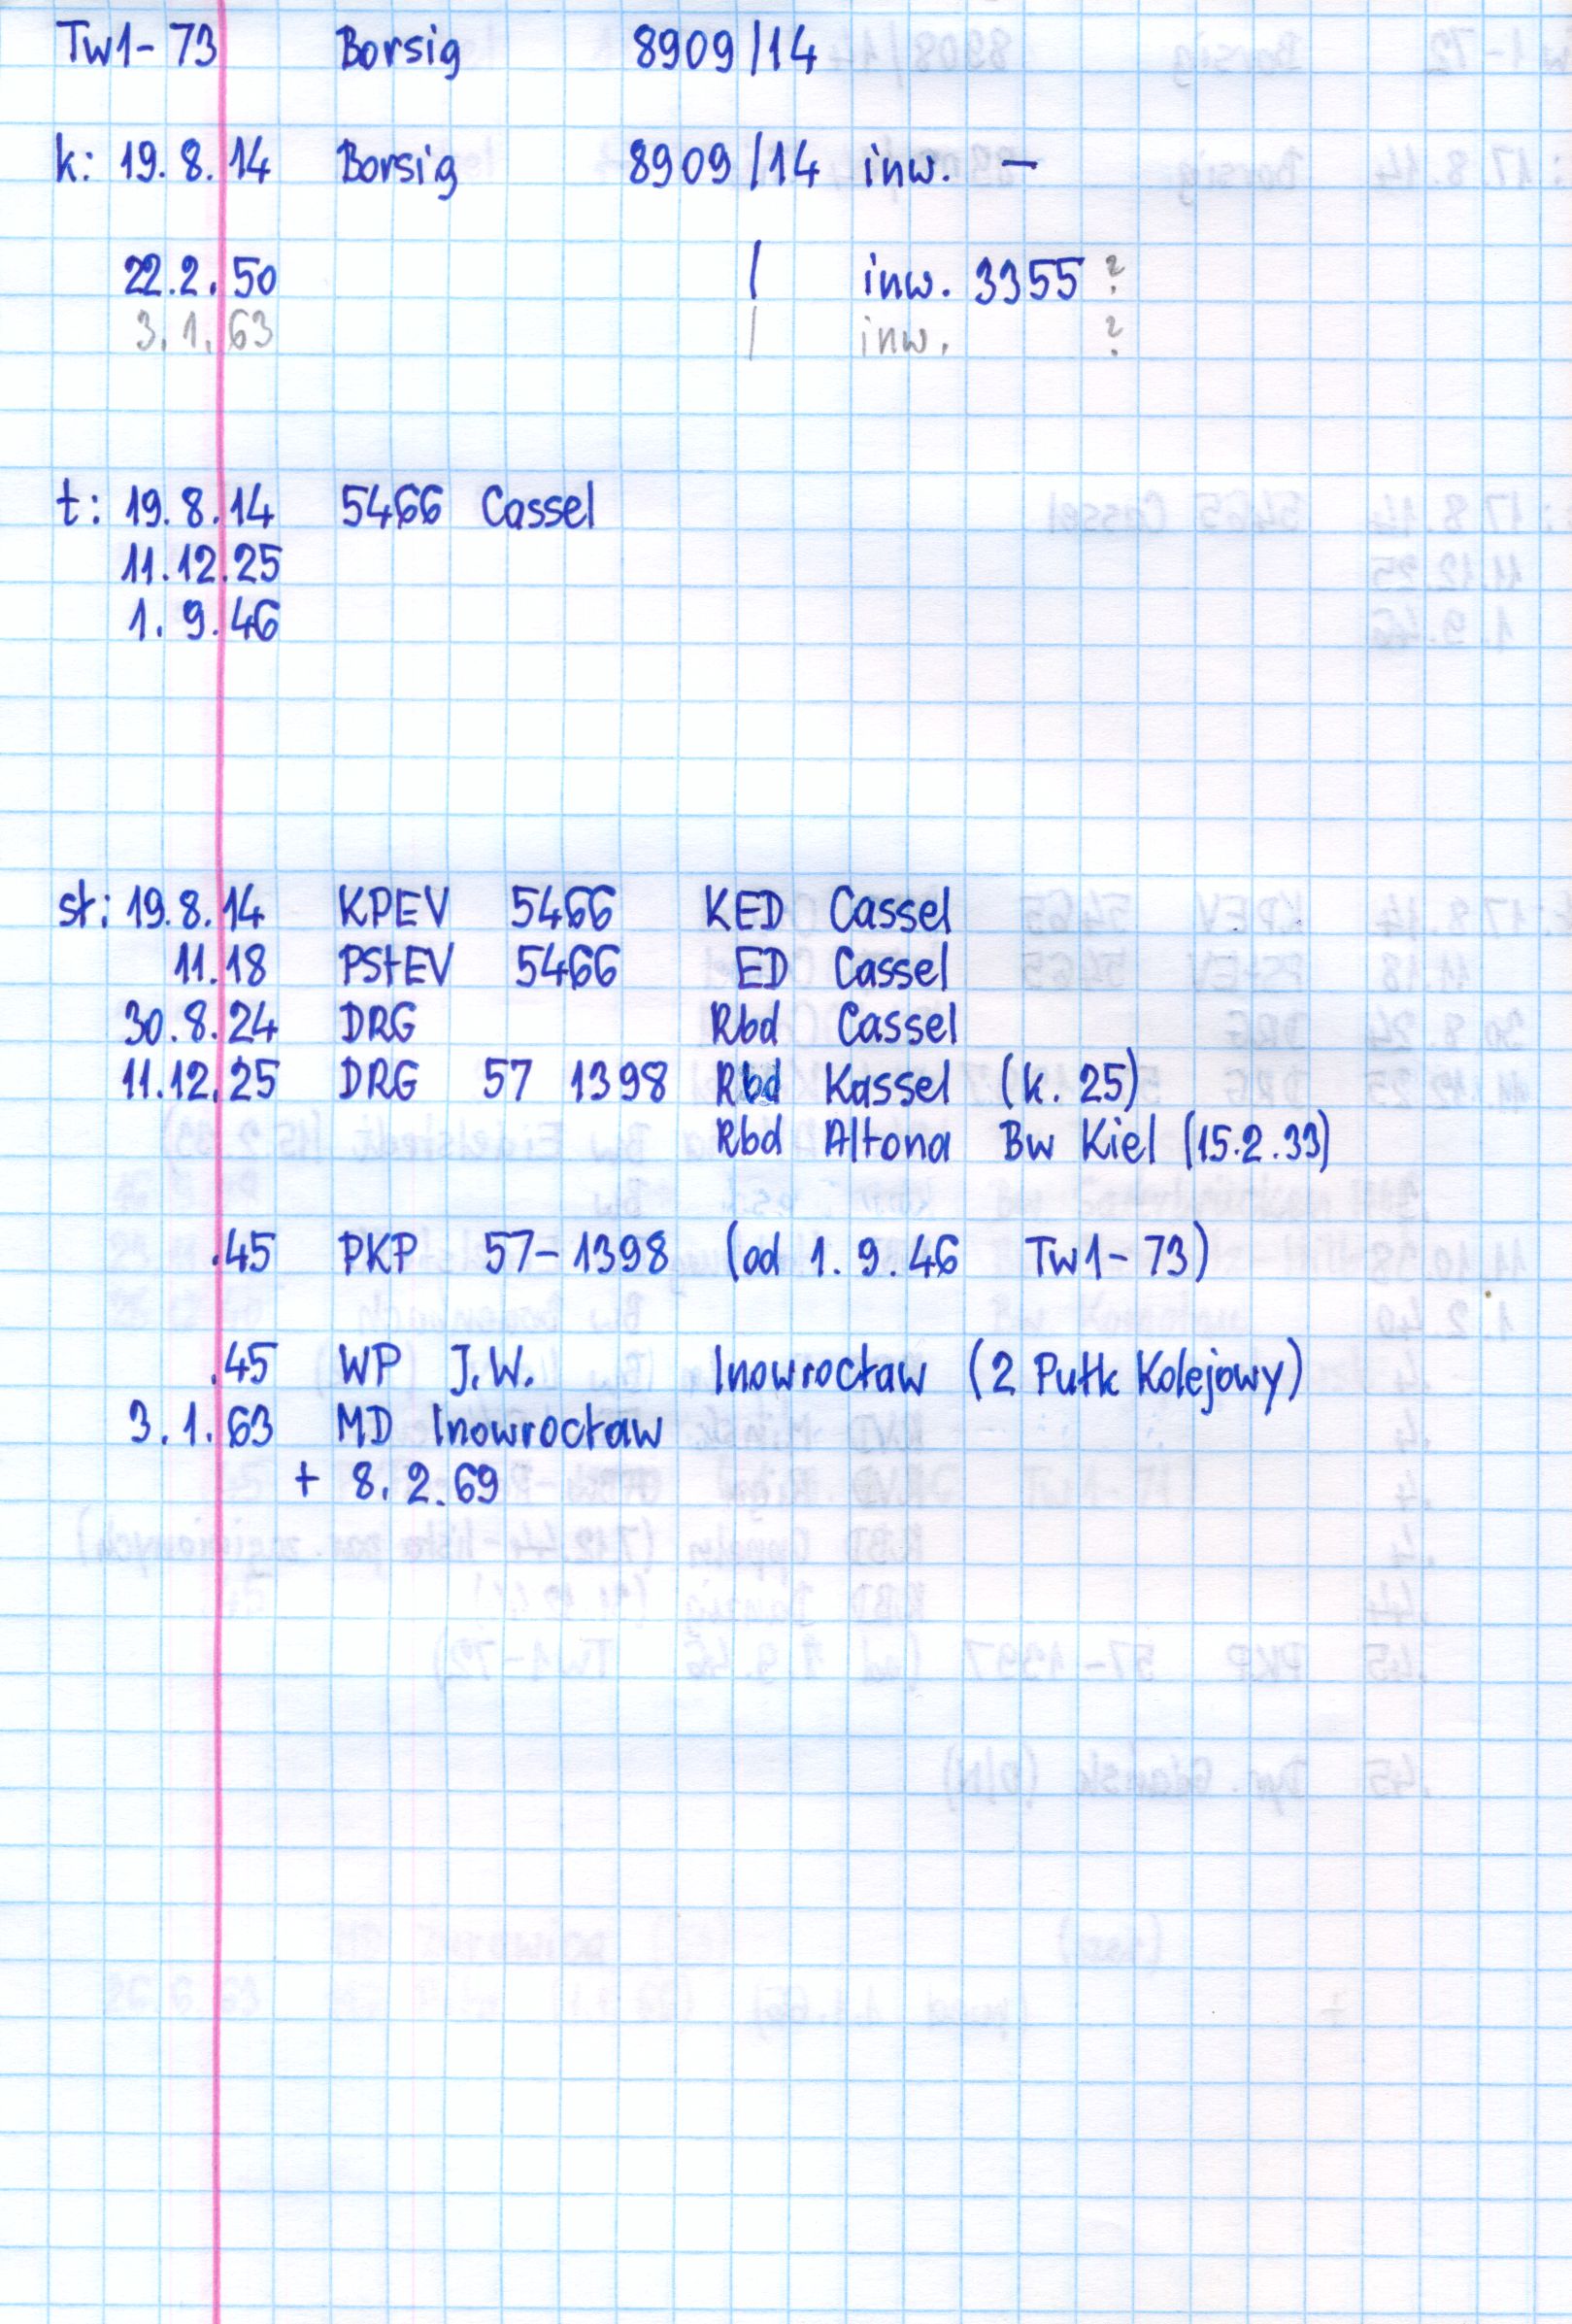 Tw1-73 Borsig 8909/14
k: 19.8.14 Borsig 8909/14 inw. –
22.2.50 / inw. 3355 ?
3.1.63 / inw. ?
t: 19.8.14 5466 Cassel
11.12.25
1.9.46
st: 19.8.14 KPEV 5466 KED Cassel
11.18 PStEV 5466 ED Cassel
30.8.24 DRG Rbd Cassel
11.12.25 DRG 57 1398 Rbd Kassel (k. 25)
Rbd Altona Bw Kiel (15.2.33)
.45 PKP 57-1398 (od 1.9.46 Tw1-73)
.45 WP J.W. Inowrocław (2 Pułk Kolejowy)
3.1.63 MD Inowrocław
+ 8.2.69